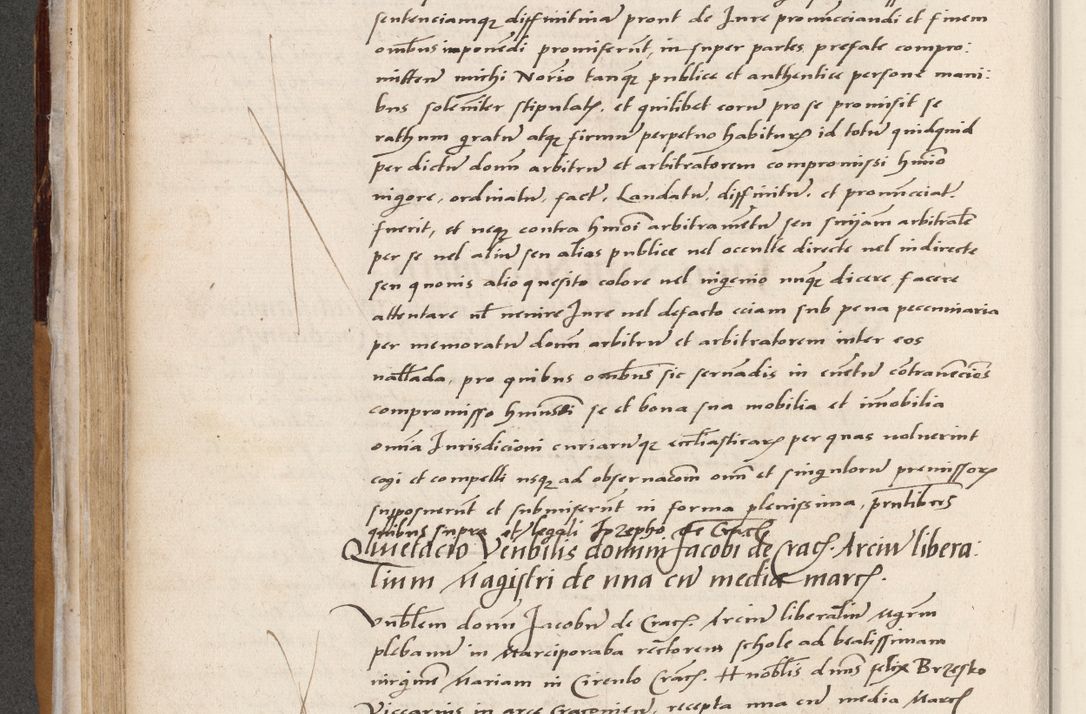 sentenciamqz diffinitiua pront de Jure pronuncciandi et finem
om̄ibus inponēdi promiserūt, in super partes prefate compro:
mitten michi No͞rio tanq̄ publice et authentice persone mani:
bus solem̄iter stipulat, et quilibet eorū pro se promisit se
rathum gratū atqz firmū perpetuo habiturz id totū quidquid
per dictū domn̄ arbitrū et arbitratorem compromissi hm̄oi
vigore, ordinatū, fact, Laudatū, diffinitū, et pronūcciat
fuerit, et neqz contra hmōi arbitramētū seu arbitrale
per se vel aliū seu alias publice vel occulte directe vel indirecte
seu quouis alio quesito colore vel ingenio unq̄ dicere facere
attentare vl̄ venire Jure vel defacto eciam sub pena peccuniaria
per memoratū domn̄ arbitrū et arbitratorem inter eos
vallada, pro quibus om̄ibus sic seruādis in euētū cōtrauēcōis
compromisso se et bona sua mobilia et im̄obilia
om̄ia Jurisdicioni curiarūqz eccl̄iasticarz per quas voluerint
cogi et compelli usqz ad obseruacōm om̄ et singulorū premissorz
supposuerūt et submiserūt in forma plenissima, pn̄tibus
quibus supra et legali Jozepho de Crac
Quietacio Venbilis domini Jacobi de Crac. Arciū libera:
lium Magistri de una cū media marc.
Vnblem domn̄ Jacobū de Crac. Arciū liberaliū Mgrm̄
plebanū in Marciporaba rectorem schole ad beatissimam
virginē Mariam in Circulo Crac. H nobl̄is dn̄us felix Brzesko
Viccarius in arce Cracouien, recepta una cū media Marc